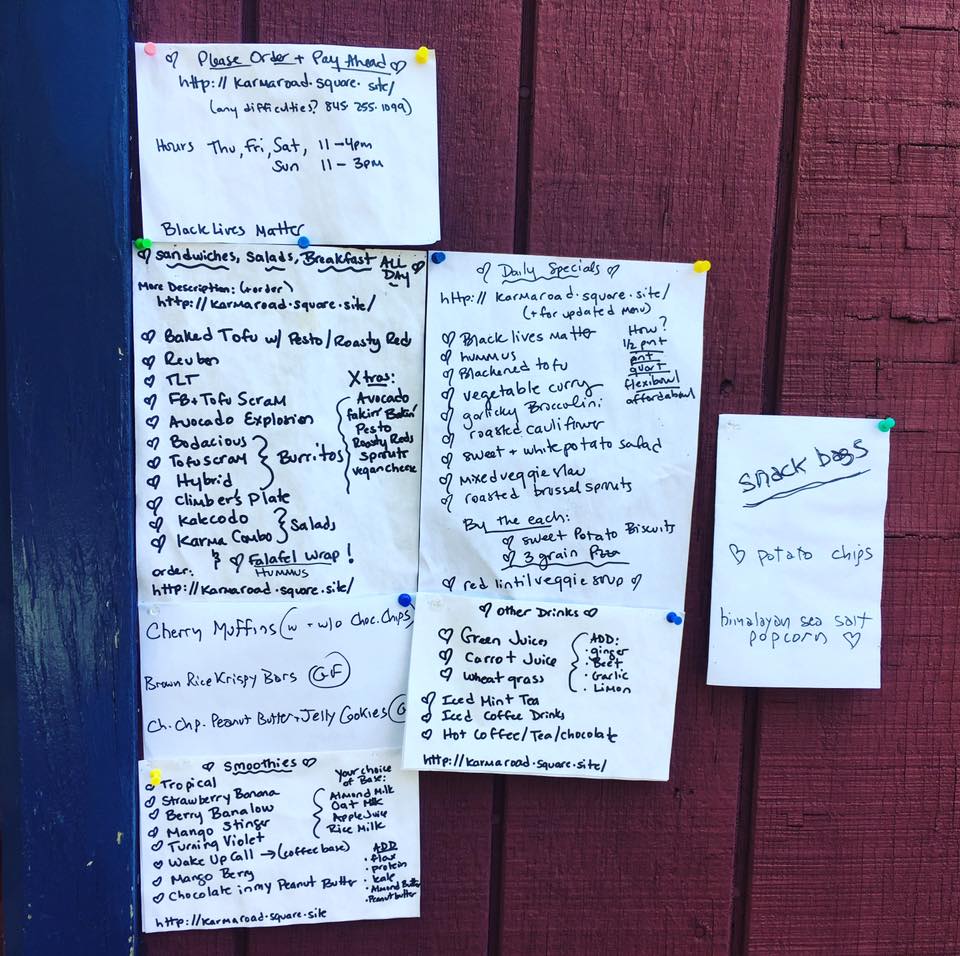 Please Order + Pay Ahead
http://karmaroad.square.site/
(any difficulties? 845.255.1099)
Hours Thu, Fri, Sat, 11-4pm
Sun 11-3pm
Black Lives Matter
Sandwiches, Salads, Breakfast ALL DAY
More Description: (+order)
http://karmaroad.square.site/
Baked Tofu w/ Pesto/Roasty Reds
Reuben
TLT
FB+Tofu Scram
Avocado Explosion
Bodacious
Tofuscram
Hybrid
Burritos
Climber's Plate
Kalecodo
Karma Combo
Salads
& Falafel Wrap!
Hummus
order:
http://karmaroad.square.site/
Xtras:
Avocado
fakin' Bakin'
Pesto
Roasty Reds
Sprouts
vegan cheese
Daily Specials
http://karmaroad.square.site/
(+ for updated menu)
Black lives matter
hummus
Blackened tofu
vegetable curry
garlicky Broccolini
roasted cauliflower
sweet + white potato salad
mixed veggie slaw
roasted brussel sprouts
How?
1/2 pnt
pnt
quart
flexibowl
affordabowl
By the each:
sweet Potato Biscuits
3 grain Pizza
red lintil veggie soup
snack bags
potato chips
himalayan sea salt
popcorn
Cherry Muffins (w + w/o Choc. Chips)
Brown Rice Krispy Bars GF
Ch. Chp. Peanut Butter + Jelly Cookies
Other Drinks
Green Juices
Carrot Juice
Wheatgrass
ADD:
ginger
Beet
Garlic
Limon
Iced Mint Tea
Iced Coffee Drinks
Hot Coffee/Tea/chocolate
http://karmaroad.square.site/
Smoothies
Tropical
Strawberry Banana
Berry Banalow
Mango Stinger
Turning Violet
Wake Up Call → (coffee base)
Mango Berry
Chocolate in my Peanut Butter
http://karmaroad.square.site
Your choice
of Base:
Almond Milk
Oat Milk
Apple Juice
Rice Milk
ADD
flax
protein
kale
Almond Butter
Peanut butter